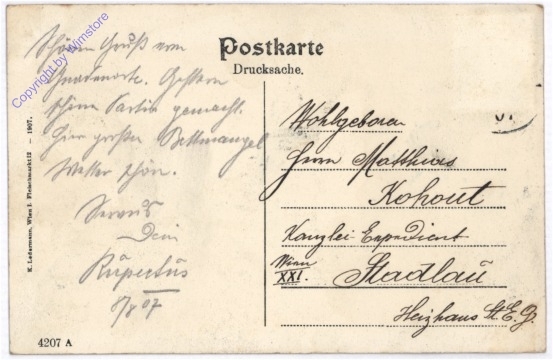 Postkarte
Drucksache.
Schönen Gruß vom
Gnadenorte. Gestern
schöne Partie gemacht.
Hier großer Bettmangel
Wetter schön.
Servus
Dein
Rupertus
8/8 07
Wohlgeboren
Herrn Matthias
Kohout
Kanzlei-Expedient
Wien
XXI. Stadlau
Heizhaus St. E. G.
K. Ledermann, Wien I. Fleischmarkt 12 – 1907.
4207 A
Copyright by Wimstore